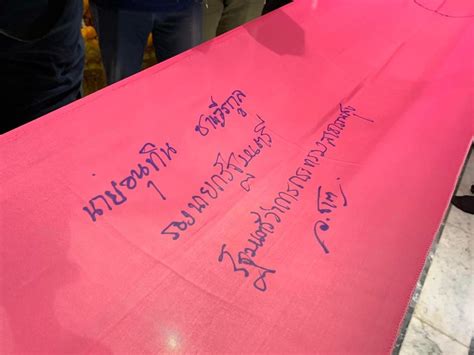 นายอนุทิน ชาญวีรกูล
รองนายกรัฐมนตรี
รัฐมนตรีว่าการกระทรวงสาธารณสุข